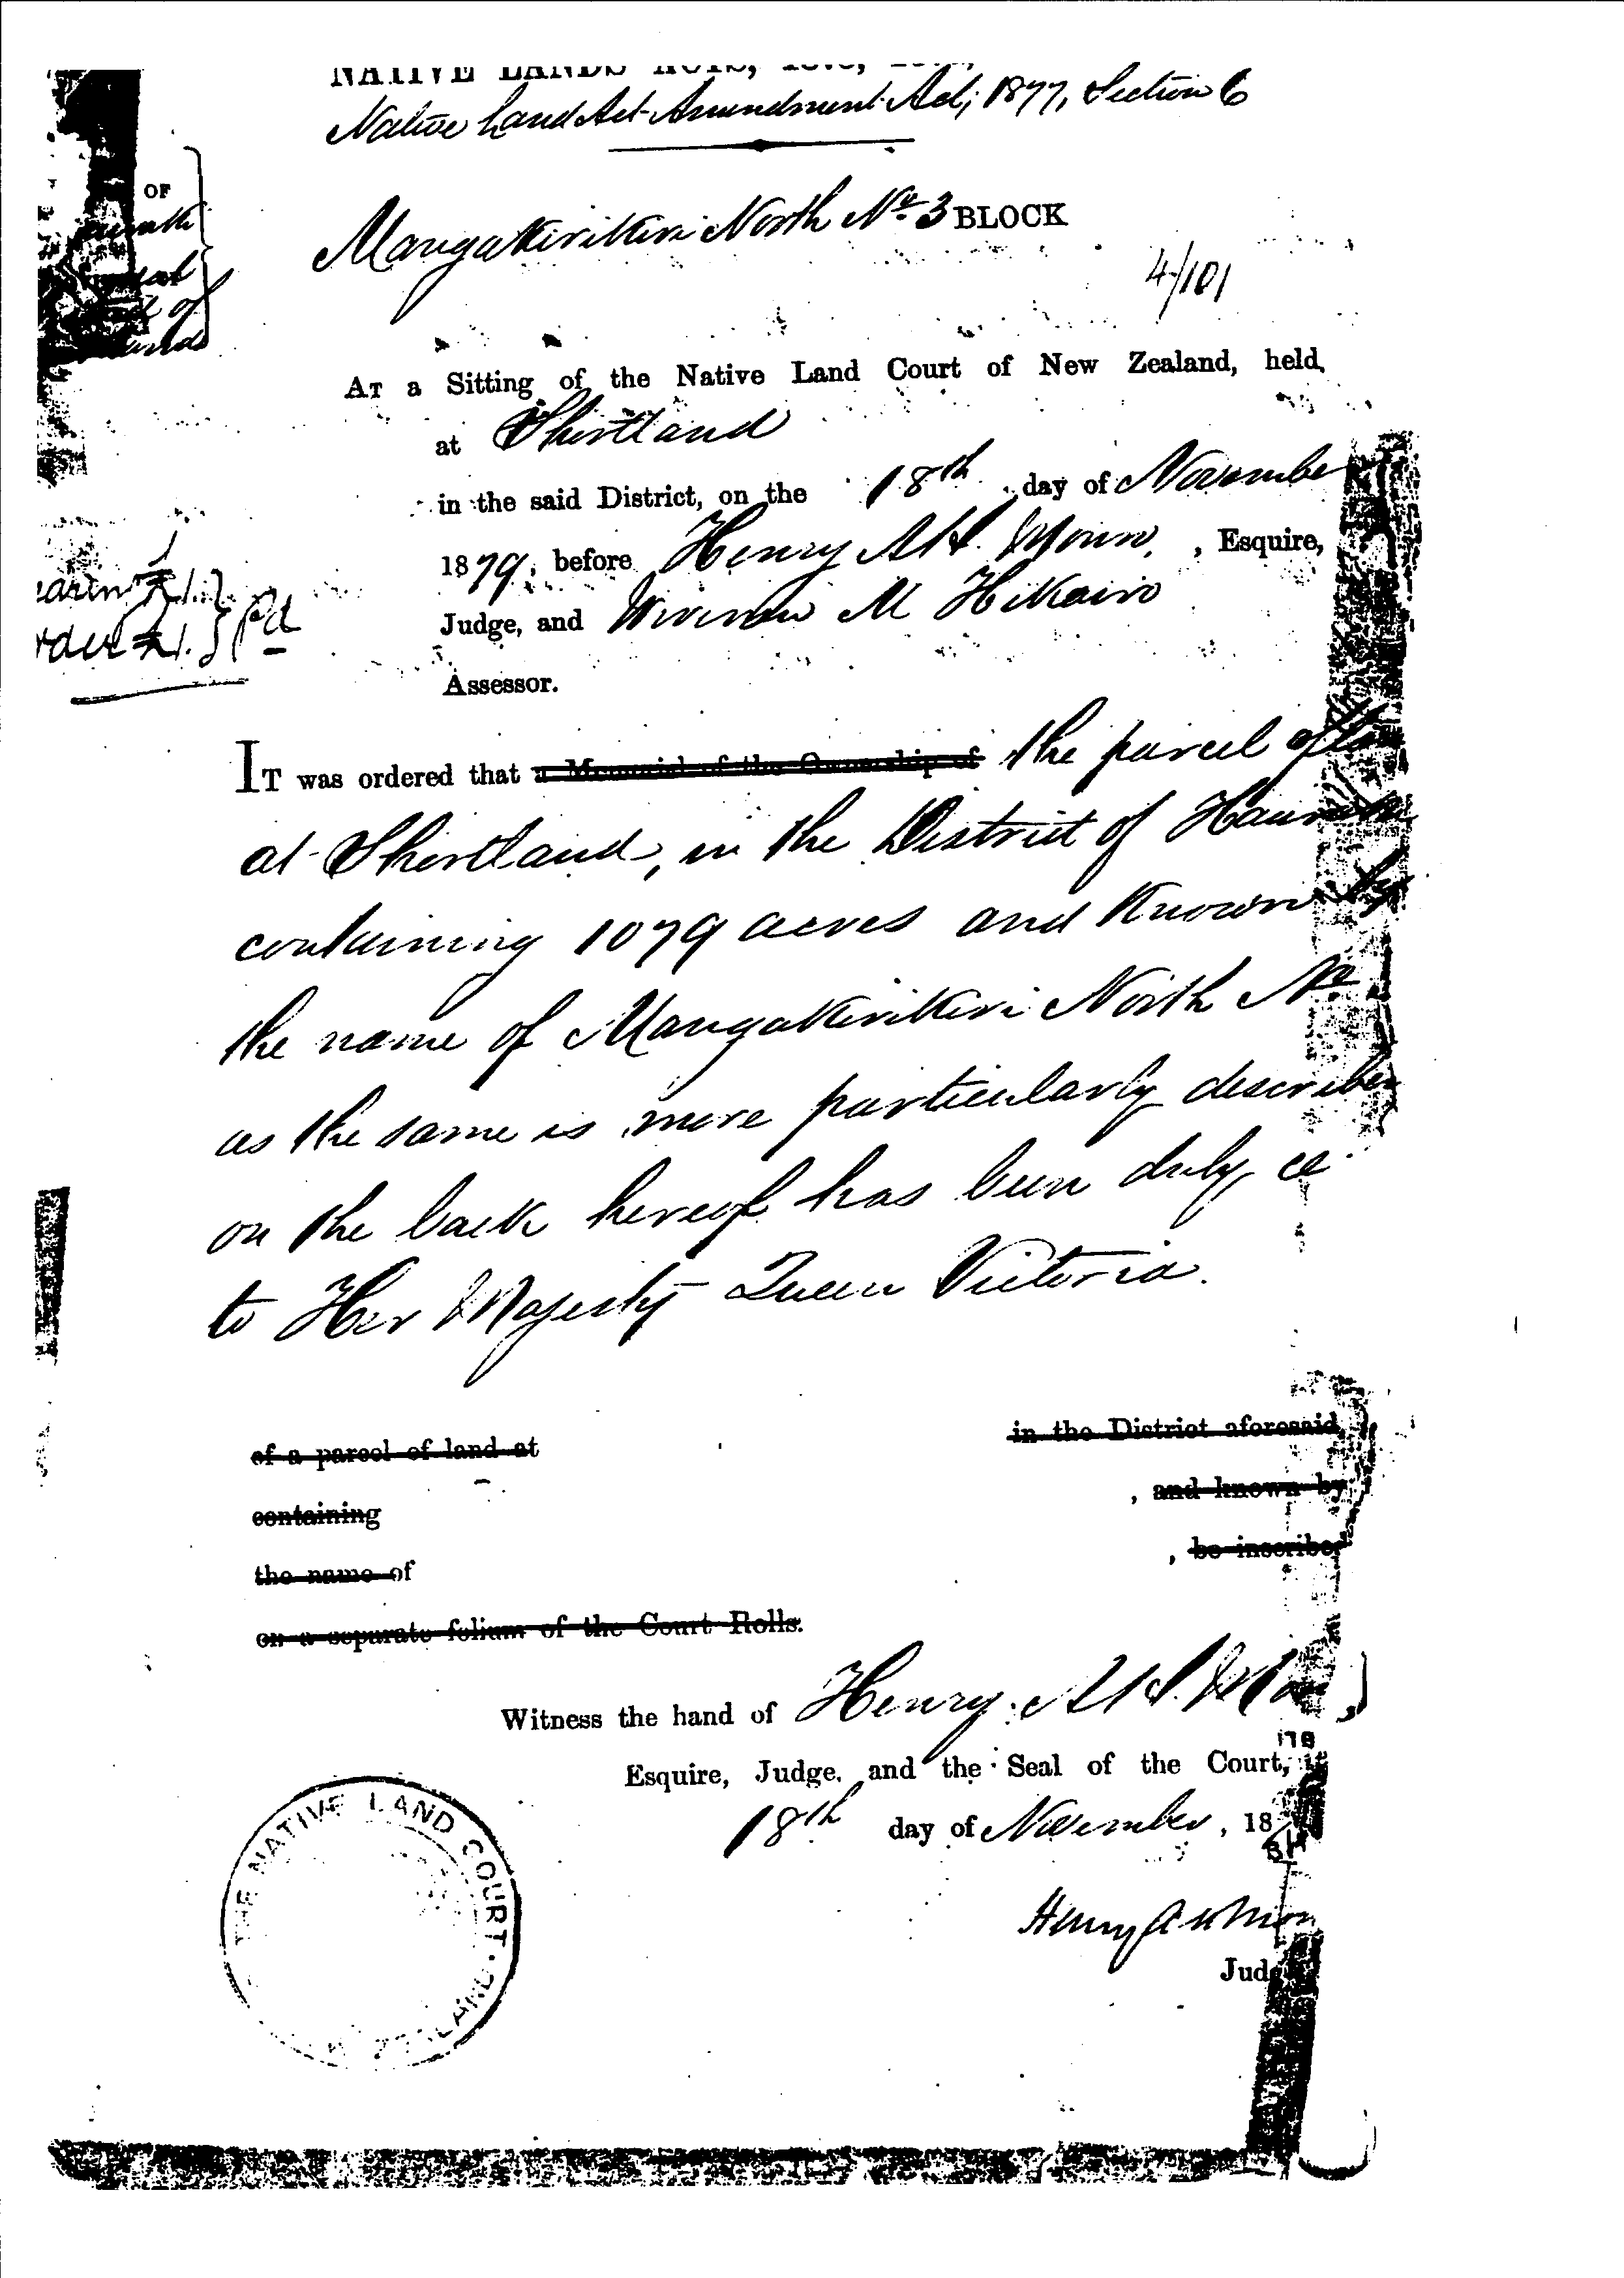 NATIVE LANDS ACTS,
Native Land Act Amendment Act, 1877, Section 6
OF
Mangakirikiri North No. 3 BLOCK
4/101
AT a Sitting of the Native Land Court of New Zealand, held,
at Shortland
in the said District, on the 18th day of November
1879, before Henry A. H. Monro, Esquire,
Judge, and M Hikairo
£1.
£1. } Pd
Assessor.
IT was ordered that a Memorial of the Ownership of the parcel of
at Shortland, in the District of Hauraki
containing 1079 acres and known by
the name of Mangakirikiri North No.
as the same is more particularly described
on the back hereof has been duly ce
to Her Majesty Queen Victoria.
of a parcel of land at in the District aforesaid,
containing , and known by
the name of , be inscribed
on a separate folium of the Court Rolls.
Witness the hand of Henry A. H.
Esquire, Judge, and the Seal of the Court,
18th day of November, 18
Henry A H Mon
Jud
THE NATIVE LAND COURT